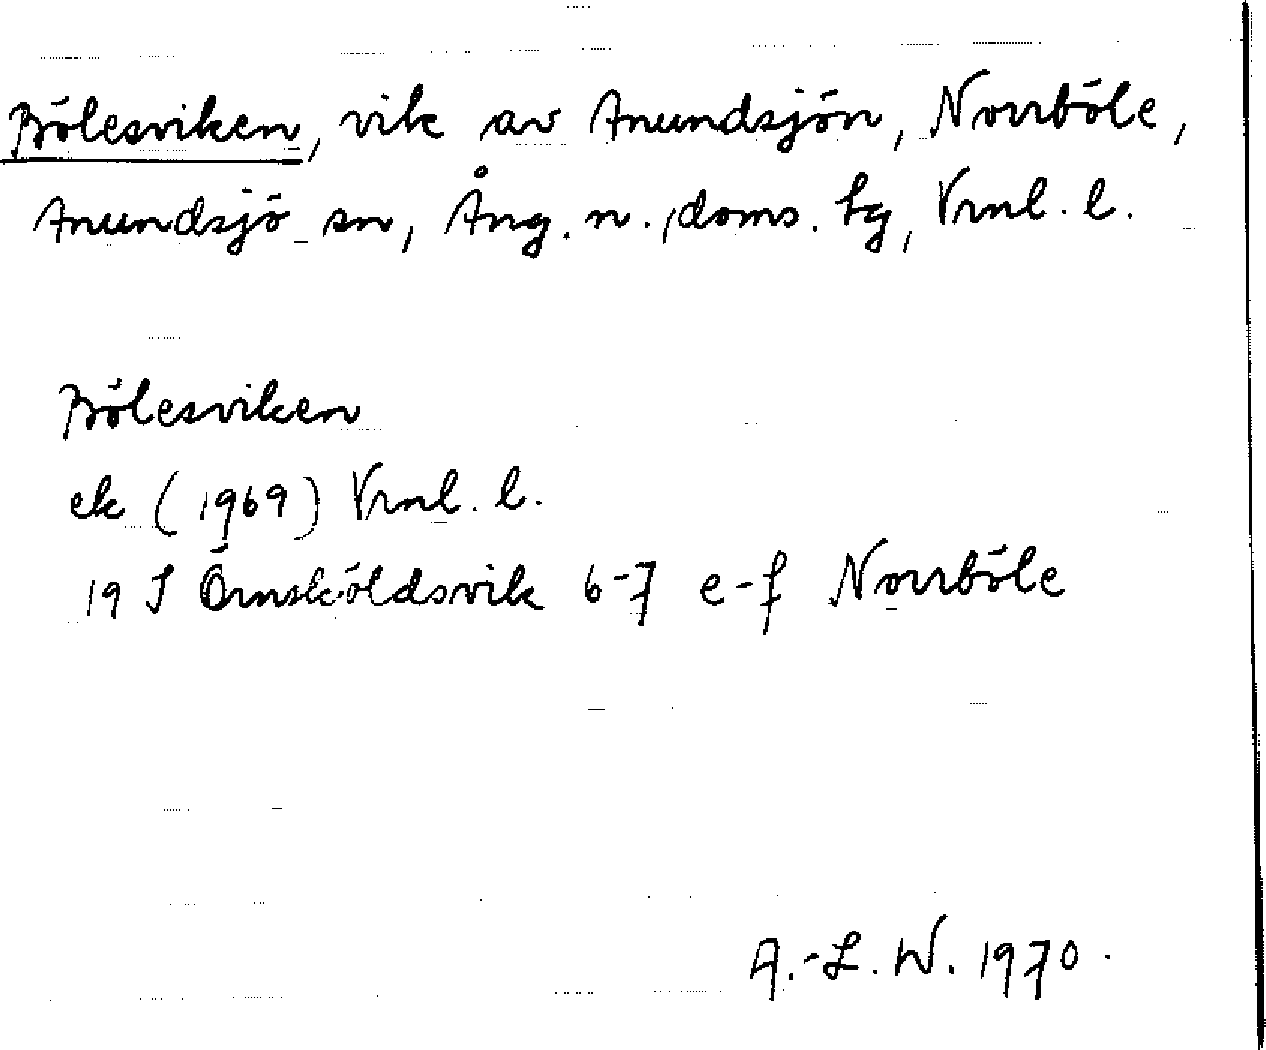 Bölesviken, vik av Anundsjön, Norrböle,
Anundsjö sn, Ång. n. doms. tg, Vrnl. l.
Bölesviken
ek (1969) Vrnl. l.
19 I Örnsköldsvik 6-7 e-f Norrböle
A.-L. W. 1970.